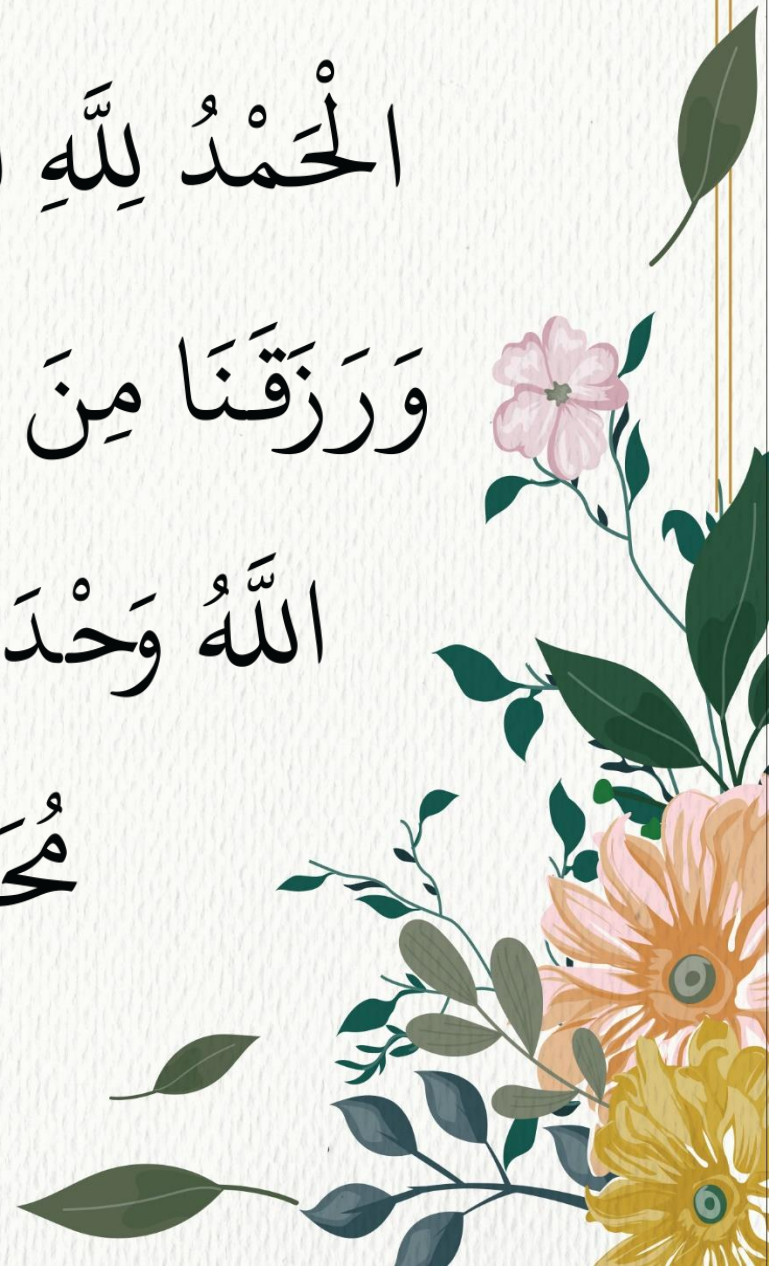 الْحَمْدُ لِلَّهِ
وَرَزَقَنَا مِنَ
اللَّهُ